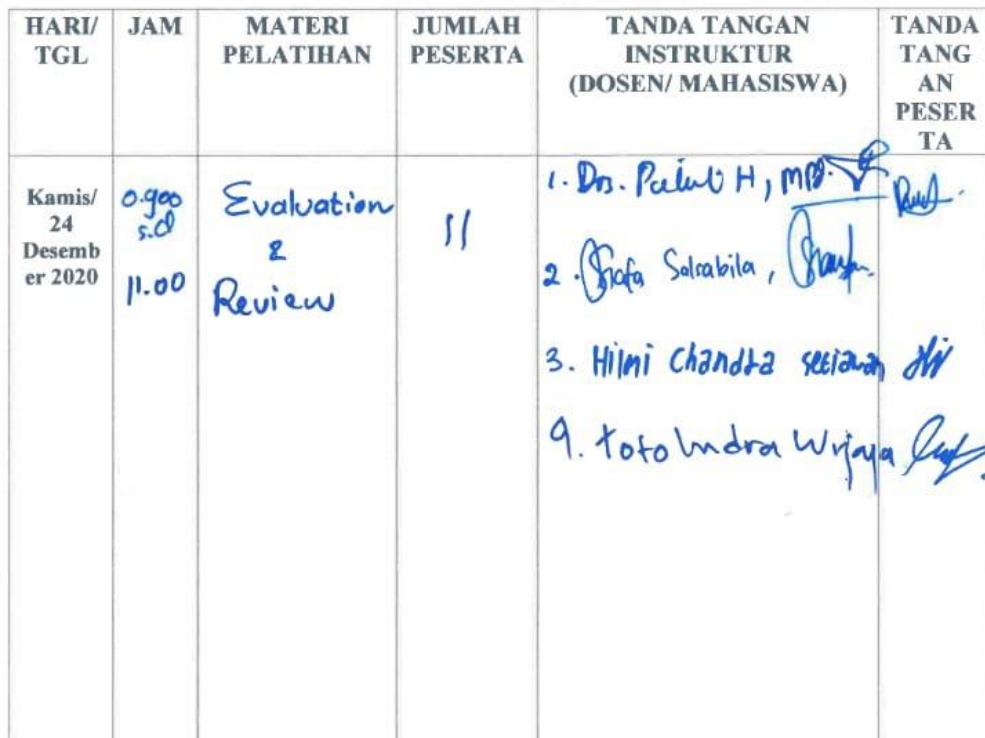 HARI/
TGL
JAM
MATERI
PELATIHAN
JUMLAH
PESERTA
TANDA TANGAN
INSTRUKTUR
(DOSEN/ MAHASISWA)
TANDA
TANG
AN
PESER
TA
Kamis/
24
Desemb
er 2020
0.900
s.d
11.00
Evaluation
&
Review
11
1. Drs. H,
2. Salsabila,
3. Hilmi Chandra Setiawan
4. Toto Indra Wijaya